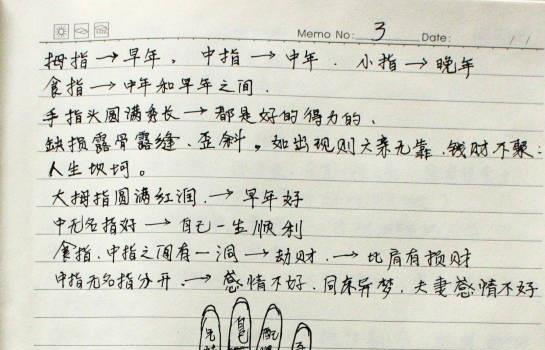 Memo No: 3 Date: / /
拇指→早年。中指→中年. 小指→晚年
食指→中年和早年之间.
手指头圆满秀长→都是好的得力的、
缺损露骨露缝、歪斜。如出现则六亲无靠.钱财不聚:
人生坎坷。
大拇指圆满红润.→早年好
中无名指好→自己一生顺利
食指.中指之间有一洞→劫财.→比肩有损财
中指无名指分开.→感情不好.同床异梦.夫妻感情不好
自己